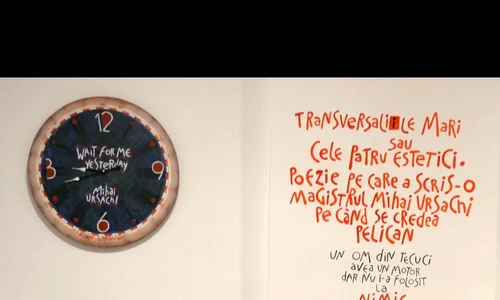 12
WAIT FOR ME
YESTERDAY
3
9
Mihai
URSACHI
6
TRANSVERSALIILE MARI
sau
CELE PATRU ESTETICI.
POEZIE PE CARE A SCRIS-O
MAGISTRUL MIHAI URSACHI
PE CÂND SE CREDEA
PELICAN
UN OM DIN TECUCI
AVEA UN MOTOR
DAR NU I-A FOLOSIT
LA
NIMIC